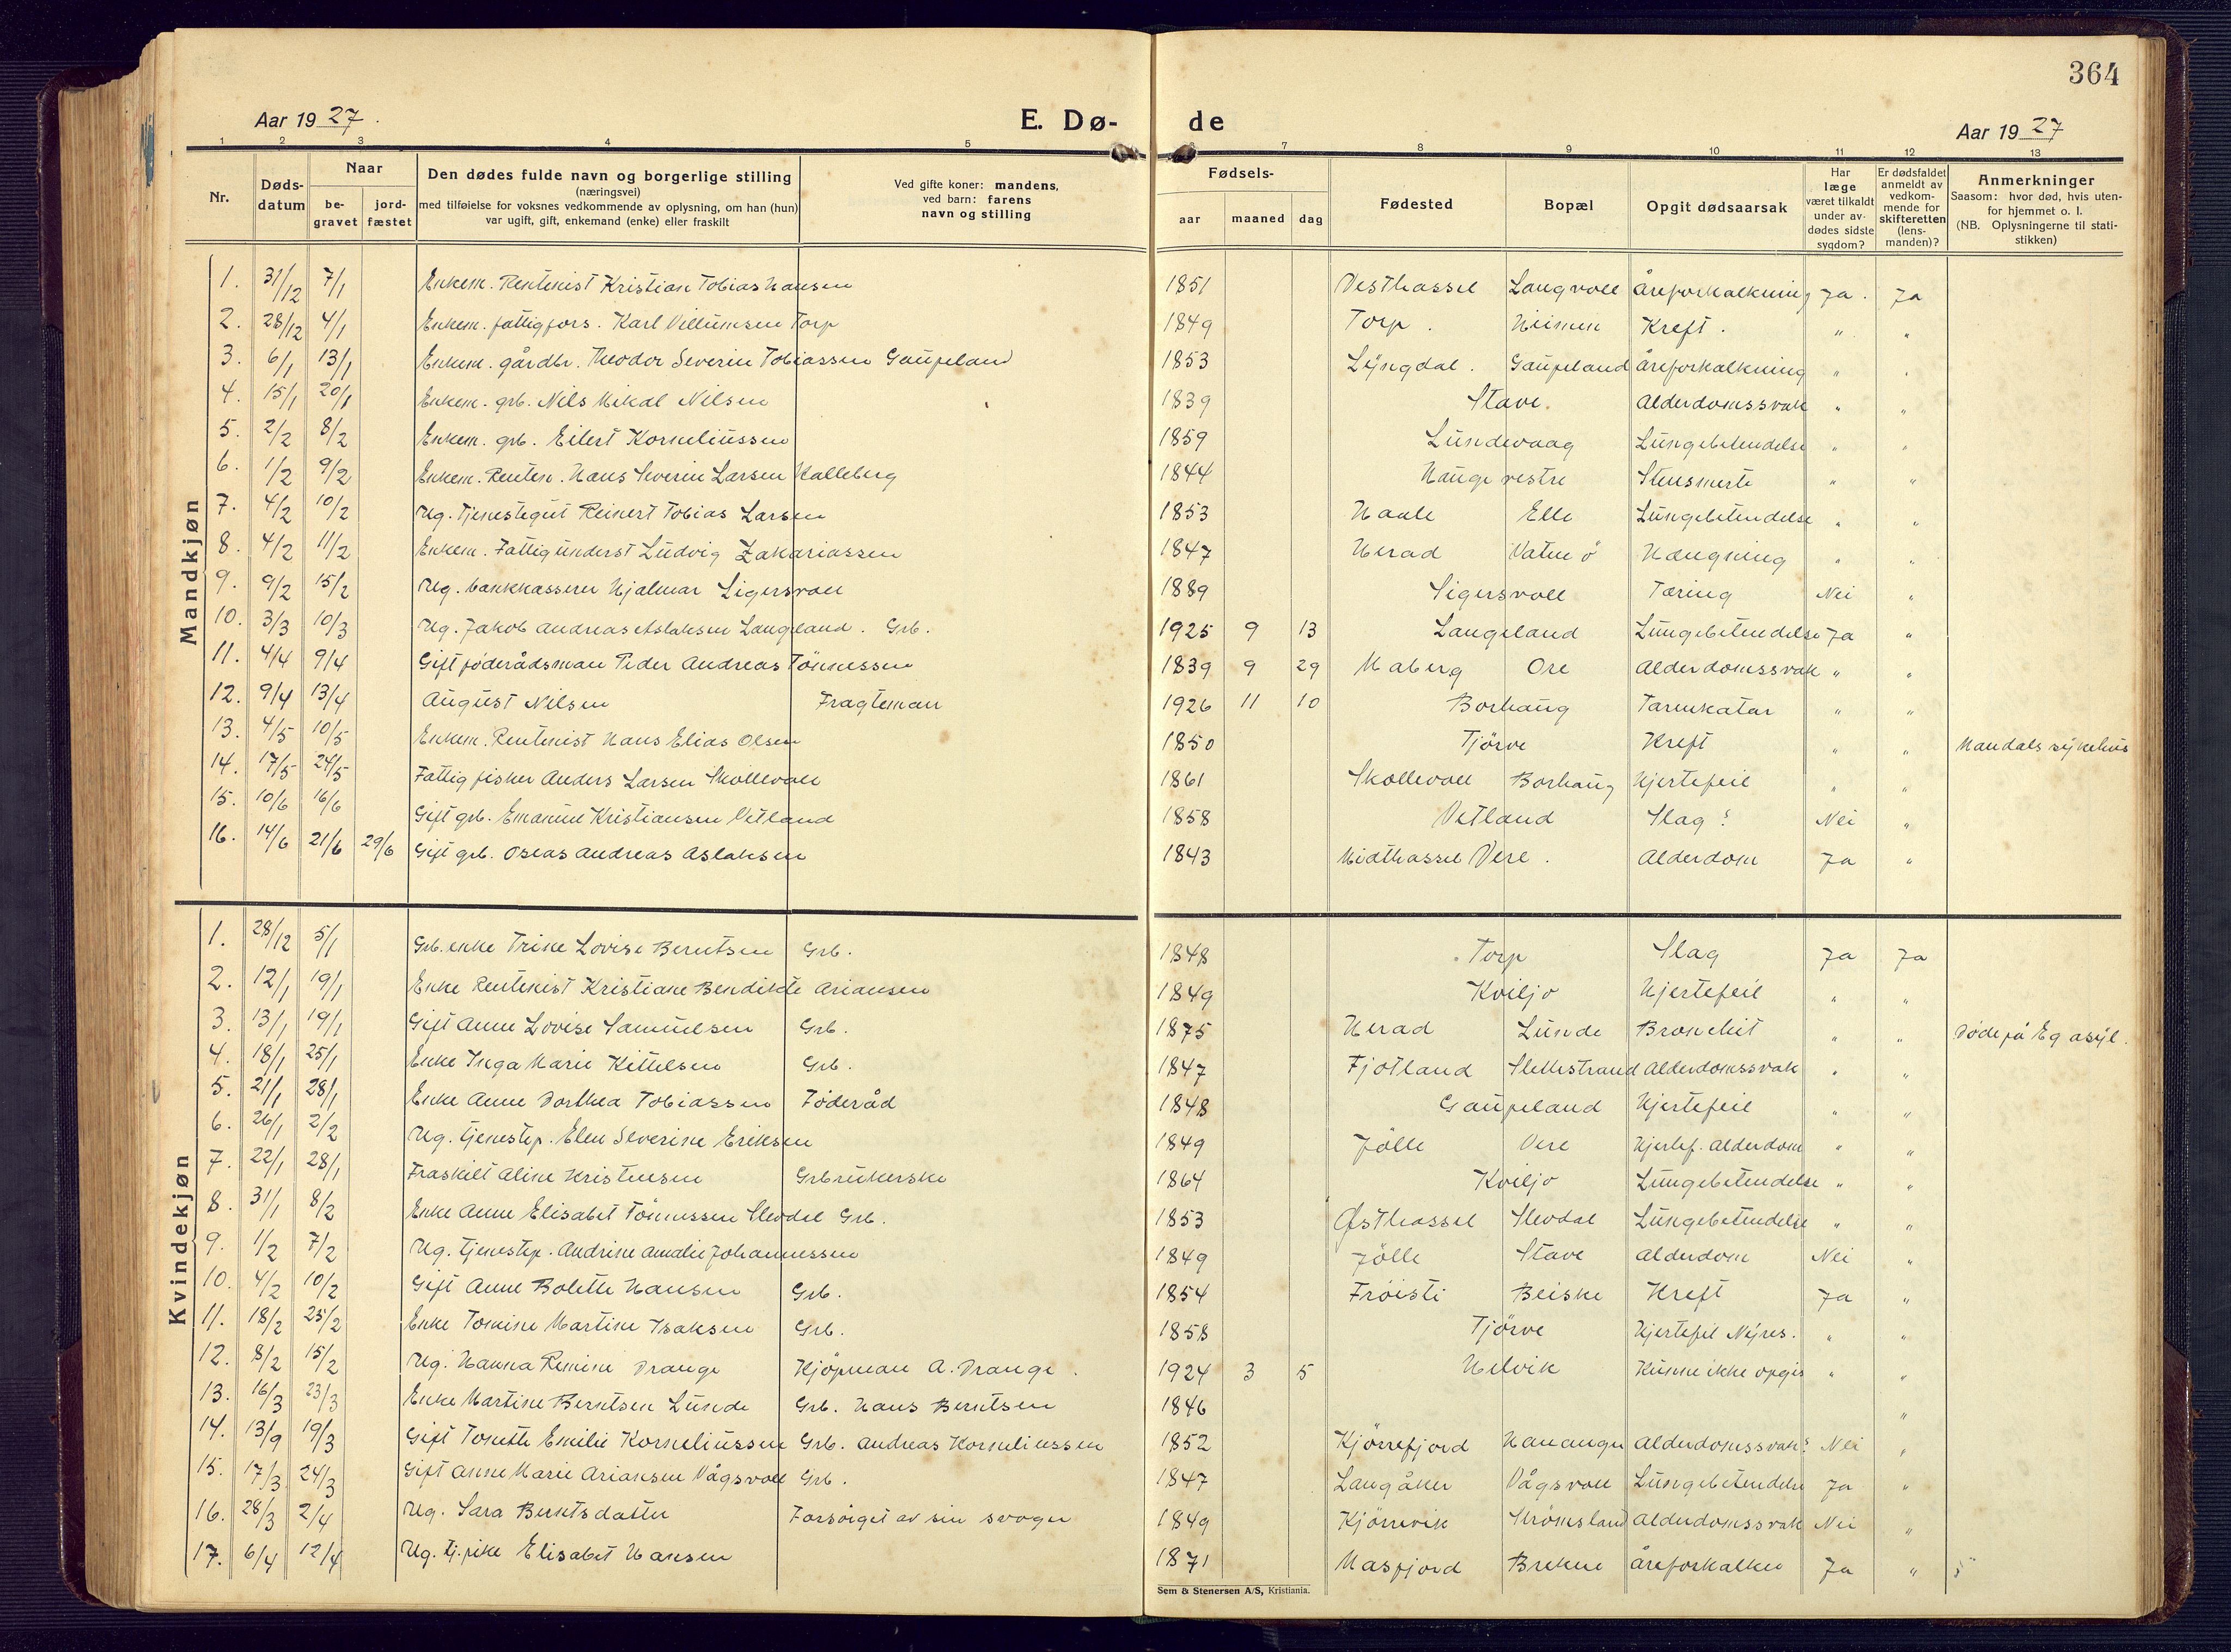 364
Aar 1927.
E. Dø-
de
Aar 1927
1 2 3 4 5 6 7 8 9 10 11 12 13
Nr.
Døds-
datum
Naar
be-
gravet
jord-
fæstet
Den dødes fulde navn og borgerlige stilling
(næringsvei)
med tilføielse for voksnes vedkommende av oplysning, om han (hun)
var ugift, gift, enkemand (enke) eller fraskilt
Ved gifte koner: mandens,
ved barn: farens
navn og stilling
Fødsels-
aar
maaned
dag
Fødested
Bopæl
Opgit dødsaarsak
Har
læge
været tilkaldt
under av-
dødes sidste
sygdom?
Er dødsfaldet
anmeldt av
vedkom-
mende for
skifteretten
(lens-
manden)?
Anmerkninger
Saasom: hvor død, hvis uten-
for hjemmet o. l.
(NB. Oplysningerne til stati-
stikken)
Mandkjøn
1. 31/12 7/1 Enkem. Rentenist Kristian Tobias Hansen 1851 Vesthassel Langvoll Åreforkalkning Ja. Ja
2. 28/12 4/1 Enkem. fattigfors. Karl Villumsen Torp 1849 Torp. Heimen Kreft. " "
3. 6/1 13/1 Enkem. gårdbr. Theodor Severin Tobiassen Gaupeland 1853 Lyngdal. Gaupeland åreforkalkning " "
4. 15/1 20/1 Enkem. grb. Nils Mikal Nilsen 1839 Stave. Alderdomssvak " "
5. 2/2 8/2 Enkem. grb. Eilert Korneliussen 1859 Lundevaag Lungebetendelse " "
6. 1/2 9/2 Enkem. Renten. Hans Severin Larsen Kalleberg 1844 Hauge vestre Stensmerte " "
7. 4/2 10/2 Ug. Tjenestegut Reinert Tobias Larsen 1853 Haale Elle Lungebetendelse " "
8. 4/2 11/2 Enkem. Fattigunderst Ludvig Zakariassen 1847 Herad Vatne ö Hængning " "
9. 9/2 15/2 Ug. bankkasserer Hjalmar Sigersvoll 1889 Sigersvoll Tæring Nei "
10. 3/3 10/3 Ug. Jakob Andreas Aslaksen Langeland. Grb. 1925 9 13 Langeland Lungebetendelse Ja "
11. 4/4 9/4 Gift föderådsman Peder Andreas Tönnessen 1839 9 29 Maberg Ore Alderdomssvak " "
12. 9/4 13/4 August Nilsen Fragteman 1926 11 10 Borhaug Tarmkatar " "
13. 4/5 10/5 Enkem. Rentenist Hans Elias Olsen 1850 Tjörve Kreft " " Mandals sykehus
14. 17/5 24/5 Fattig fisker Anders Larsen Skollevoll 1861 Skollevoll Borhaug Hjertefeil " "
15. 10/6 16/6 Gift grb. Emanuel Kristiansen Vetland 1858 Vetland Slag? Nei "
16. 14/6 21/6 29/6 Gift grb. Oseas Andreas Aslaksen 1843 Midthassel Vere. Alderdom Ja "
Kvindekjøn
1. 28/12 5/1 Grb. enke Trine Lovise Berntsen Grb. 1848 Torp Slag Ja Ja
2. 12/1 19/1 Enke Rentenist Kristiane Bendikte Ariansen 1849 Kviljo Hjertefeil " "
3. 13/1 19/1 Gift Anne Lovise Samuelsen Grb. 1875 Herad Lunde Bronchit " " Döde på Eg asyl.
4. 18/1 25/1 Enke Inga Marie Kittelsen Grb. 1847 Fjotland Slettestrand Alderdomssvak " "
5. 21/1 28/1 Enke Anne Dorthea Tobiassen Föderåd 1848 Gaupeland Hjertefeil " "
6. 26/1 2/2 Ug. tjenestep. Elen Severine Eriksen 1849 Jölle Vere Hjertef. Alderdom " "
7. 22/1 28/1 Fraskilt Aline Kristensen Grbrukerske 1864 Kviljo Lungebetendelse " "
8. 31/1 8/2 Enke Anne Elisabet Tönnessen Slevdal Grb. 1853 Østhassel Slevdal Lungebetendelse " "
9. 1/2 7/2 Ug. tjenestep. Andrine Amalie Johannessen 1849 Jölle Stave Alderdom Nei "
10. 4/2 10/2 Gift Anne Bolette Hansen Grb. 1854 Fröisti Beiske Kreft Ja "
11. 18/2 25/2 Enke Tomine Martine Isaksen Grb. 1858 Tjörve Hjertefeil Nyres. " "
12. 8/2 15/2 Ug. Hanna Remine Drange Kjöpman A. Drange. 1924 3 5 Helvik Kunne ikke opgis " "
13. 16/3 23/3 Enke Martine Berntsen Lunde Grb. Hans Berntsen 1846 "
14. 13/9 19/3 Gift Tonette Emilie Korneliussen Grb. Andreas Korneliussen 1852 Kjörrefjord Hananger Alderdomssvak? Nei "
15. 17/3 24/3 Gift Anne Marie Ariansen Vågsvoll Grb. 1847 Langåker Vågsvoll Lungebetendelse Ja "
16. 28/3 2/4 Ug. Sara Berntsdatter Forsörget av sin svoger 1849 Kjörrevik Strömsland Alderdomssvak Nei "
17. 6/4 12/4 Ug. tj.pike Elisabet Hansen 1871 Masfjord Brekne åreforkalken Ja "
Sem & Stenersen A/S, Kristiania.